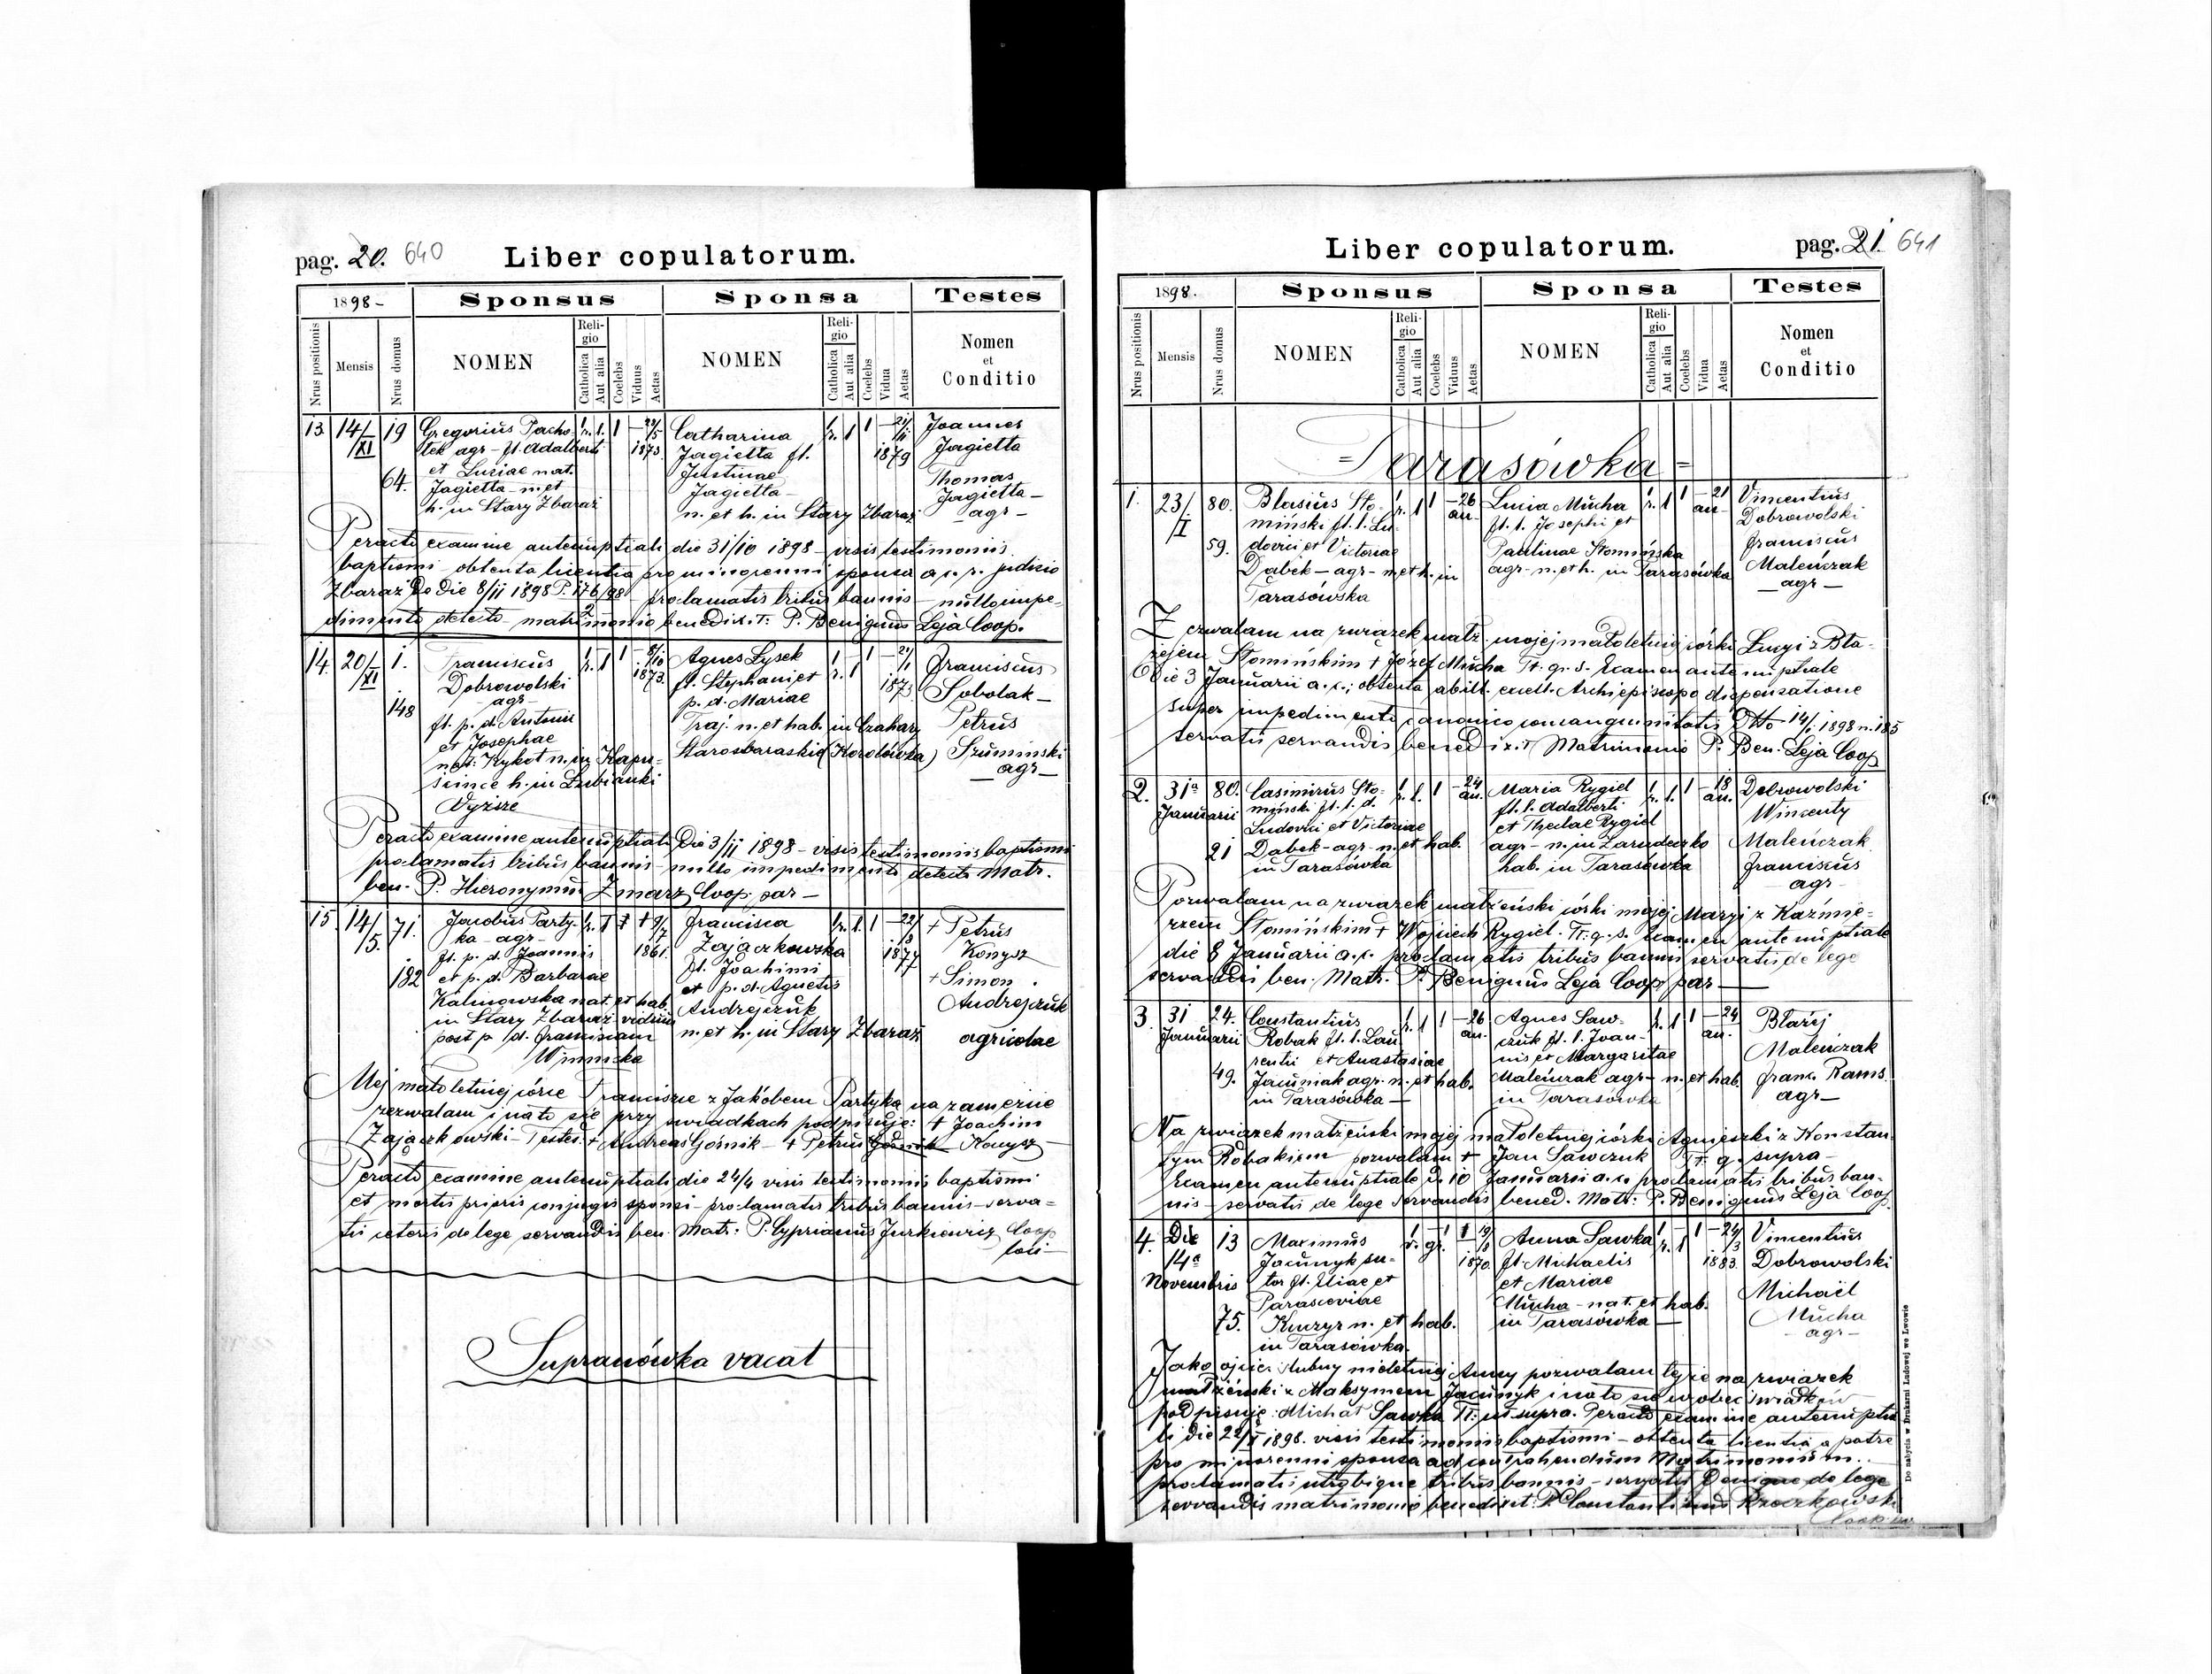 pag. 20. 640
Liber copulatorum.
1898 -
Sponsus
Sponsa
Testes
Nrus positionis
Mensis
Nrus domus
NOMEN
Religio
Catholica
Aut alia
Coelebs
Viduus
Aetas
NOMEN
Religio
Catholica
Aut alia
Coelebs
Vidua
Aetas
Nomen
et
Conditio
13 14/XI 19 Gregorius Pacho- r. l. 1 - 1873 Catharina r. l 1 - 1879 Joannes
tek agr - fl. Adalberti Jagiełła fl. Jagiełła
et Luciae nat. Justinae Thomas
64. Jagiełła n. et Jagiełła - Jagiełła -
h. in Stary Zbaraż n. et h. in Stary Zbaraż - agr -
Peracto examine antenuptiali die 31/10 1898 - visis testimoniis
baptismi obtenta licentia pro minorenni sponsa a c. r. judicio
Zbaraż Do die 8/11 1898 P. 176/98 proclamatis tribus bannis - nullo impe-
dimento detecto - matrimonio benedixit: P. Benignus Leja Coop.
14. 20/XI 1. Franciscus r. l 1 - 8/10 1873. Agnes Łysek r. l 1 - 21/1 1873 Franciscus
Dobrowolski fl. Stephani et Sobolak -
- agr - p. d. Mariae
148 fl. p. d. Antonii Traj. n. et hab. in Czahary Petrus
et Josephae Starozbaraskie (Korolówka) Szumiński
nat: Kykot n. in Kapu- - agr -
ścince h. in Łubianki
Wyższe
Peracto examine antenuptiali Die 3/11 1898 - visis testimoniis baptismi
proclamatis tribus bannis - nullo impedimento detecto Matr.
ben. P. Hieronymus Zmarz Coop. par -
15. 14/5. 71. Jacobus Party- r. 1861. Francisca r. l. 1 - 22/ 1877 + Petrus
ka - agr - Zajączkowska Konysz
fl. p. d. Joannis fl. Joachimi + Simon
182 et p. d. Barbarae et p. d. Agnetis
Kalinowska nat. et hab. Andrejczuk Andrejczuk
in Stary Zbaraż viduus n. et h. in Stary Zbaraż agricolae
post p. d. Franciscam
Winnicka
Mej małoletniej córce Franciszce z Jakóbem Partyką na zamęście
zezwalam i na to się przy świadkach podpisuję: + Joachim
Zajączkowski - Testes: + Andreas Góźnik - + Petrus Konysz
Peracto examine antenuptiali die 24/4 visis testimoniis baptismi
et mortis prioris conjugis sponsi - proclamatis tribus bannis - serva-
tis ceteris de lege servandis ben. Matr: P. Cyprianus Jurkiewicz Coop
loci -
Supranówka vacat
Liber copulatorum.
pag. 21. 641
1898.
Sponsus
Sponsa
Testes
Nrus positionis
Mensis
Nrus domus
NOMEN
Religio
Catholica
Aut alia
Coelebs
Viduus
Aetas
NOMEN
Religio
Catholica
Aut alia
Coelebs
Vidua
Aetas
Nomen
et
Conditio
= Tarasówka =
1. 23/I 80. Blasius Sło- r. l 1 - 26 an. Lucia Mucha r. l 1 - 21 an - Vincentius
miński fl. l. Lu- fl. l. Josephi et Dobrowolski
59. dovici et Victoriae Paulinae Słomińska Franciscus
Dąbek - agr - n. et h. in agr - n. et h. in Tarasówka Maleńczak
Tarasówska - agr -
Zezwalam na związek matż. mojej małoletniej córki Łucyi z Bła-
żejem Słomińskim + Józef Mucha TT. q. s. Examen antenuptiale
die 3 Januarii a. c.; obtenta ab ill. excell. Archiepiscopo dispensatione
super impedimento canonico consanguinitatis Dtto 14/1 1898 n. 185
servatis servandis benedixit Matrimonio P. Ben. Leja Coop
2. 31a 80. Casimirus Sło- r. l. 1 - 24 an. Maria Rygiel r. l. 1 - 18 an. Dobrowolski
Januarii miński fl. l. d. fl. l. Adalberti Wincenty
Ludovici et Victoriae et Theclae Rygiel
21 Dąbek - agr - n. et hab. agr - n. in Zarudeczko Maleńczak
in Tarasówka hab. in Tarasówka Franciscus
agr -
Pozwalam na związek małżeński córki mojej Maryi z Kaźmie-
rzem Słomińskim + Wojciech Rygiel. TT. q. s. Examen antenuptiale
die 8 Januarii a. c. proclamatis tribus bannis servatis de lege
servandis ben. Matr. P. Benignus Leja Coop par -
3. 31 24. Constantius r. l 1 - 26 an. Agnes Saw- r. l 1 - 24 an. Błażej
Januarii Robak fl. l. Lau- czuk fl. l. Joan- Maleńczak
rentii et Anastasiae nis et Margaritae
49. Jacuniak agr - n. et hab. Maleńczak agr - n. et hab. Franc. Rams
in Tarasówka - in Tarasówka agr -
Na związek małżeński mojej małoletniej córki Agnieszki z Konstan-
tym Robakiem pozwalam + Jan Sawczuk TT. q. supra -
Examen antenuptiale d. 10 Januarii a. c. proclamatis tribus ban-
nis - servatis de lege servandis bened. Matr: P. Benignus Leja Coop
4. Die 13 Maximus r. gr. 1870. Anna Sawka r. l 1 - 24/3 1883. Vincentius
14a Jacunyk su- fl. Michaelis Dobrowolski
Novembris tor fl. Eliae et et Mariae Michaël
Parasceviae Mucha - nat. et hab. Mucha
75. Kuczyr n. et hab. in Tarasówka - - agr -
in Tarasówka.
Jako ojciec ślubny nieletniej Anny pozwalam tejże na związek
małżeński z Maksymem Jacunyk i na to się wobec świadków
podpisuję: Michał Sawka TT: ut supra. Peracto examine antenuptia-
li die 22/X 1898. visis testimoniis baptismi - obtenta licentia a patre
pro minorenni sponsa ad contrahendum Matrimonium.
proclamatis utrobique tribus bannis - servatis Denique de lege
servandis matrimonio benedixit: P. Constantinus
Do nabycia w Drukarni Ludowej we Lwowie